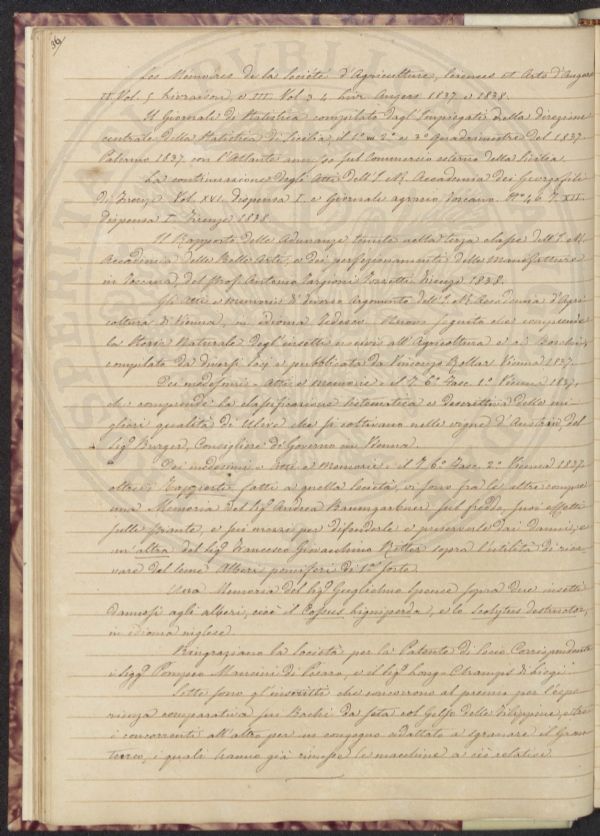 36
Les Memoires de la Société d'Agriculture, Sciences et Arts d'Angers
II Vol. 5 Livraison, e III Vol 3. 4 Livr. Angers 1837 e 1838.
Il Giornale di Statistica compilato dagl'Impiegati della direzione
centrale della Statistica di Sicilia il 1° 2° e 3° Quadrimestre del 1837.
Palermo 1837 con l'Atlante sul Commercio esterno della Sicilia.
La continuazione degli Atti dell'I. R. Accademia dei Georgofili
di Firenze Vol. XVI. Dispensa I. e Giornale agrario Toscano. N° 46. T. XII.
Dispensa I. Firenze 1838.
Il Rapporto delle Adunanze tenute nella terza classe dell'I. R.
Accademia delle Belle Arti, e dei perfezionamenti delle Manifatture
in Toscana, del Prof. Antonio Targioni Tozzetti. Firenze 1838.
Gli Atti e Memorie di diverso Argomento dell'I. R. Accademia d'Agri
coltura di Vienna, in idioma Tedesco. che comprende
la Storia Naturale degl'insetti nocivi all'Agricoltura e ai Boschi,
compilata da diversi Soci e pubblicata da Vincenzo Kollar Vienna 1837.
Dei medesimi Atti e Memorie il T. 6° Fasc. 1° Vienna 1837,
che comprende la classificazione sistematica e descrittiva delle mi
gliori qualità di Uve che si coltivano nelle vigne d'Austria, del
Sig.r Burger, Consigliere di Governo in Vienna.
Dei medesimi Atti e Memorie il T. 6° Fasc. 2° Vienna 1837.
oltre i Rapporti fatti a quella Società, vi sono fra le altre comprese
una Memoria del Sig.r Andrea Baumgartner sul freddo, suoi effetti
sulle piante, e sui mezzi per difenderle e preservarle dai danni; e
un'altra del Sig.r Francesco Gioacchino Ratter sopra l'utilità di rica-
vare dal seme Alberi pomiferi di 1a sorte.
Una Memoria del Sig.r Guglielmo Spence sopra due insetti
dannosi agli alberi, cioè il Cossus ligniperda, e lo Scolytus destructor,
in idioma inglese.
Ringraziano la Società per la Patente di Socio Corrispondente
i Sigg.ri Pompeo Mancini di Pesaro, e il Sig.r Longo Champis di Liegi
Sette sono gl'inscritti che concorrono al premio per l'espe
rienza comparativa sui Bachi da seta col Gelso delle Filippine, oltre
i concorrenti all'altro per un congegno adattato a sgranare il Gran
turco, i quali hanno già rimesse le macchine a ciò relative.